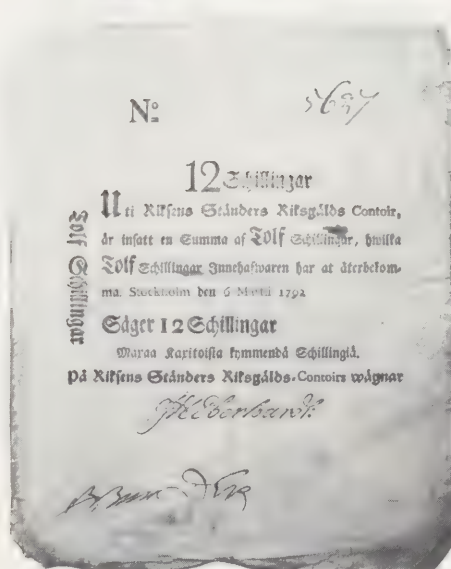 Nº 5697
12 Schillingar
Uti Riksens Ständers Riksgälds Contoir,
är insatt en Summa af Tolf Schillingar, hwilka
Tolf Schillingar Innehafwaren har at återbekom-
ma. Stockholm den 6 Martii 1792
Säger 12 Schillingar
Maxaa Kaxitoista kymmendä Schillingiä.
På Riksens Ständers Riksgälds-Contoirs wägnar
Tolf Schillingar